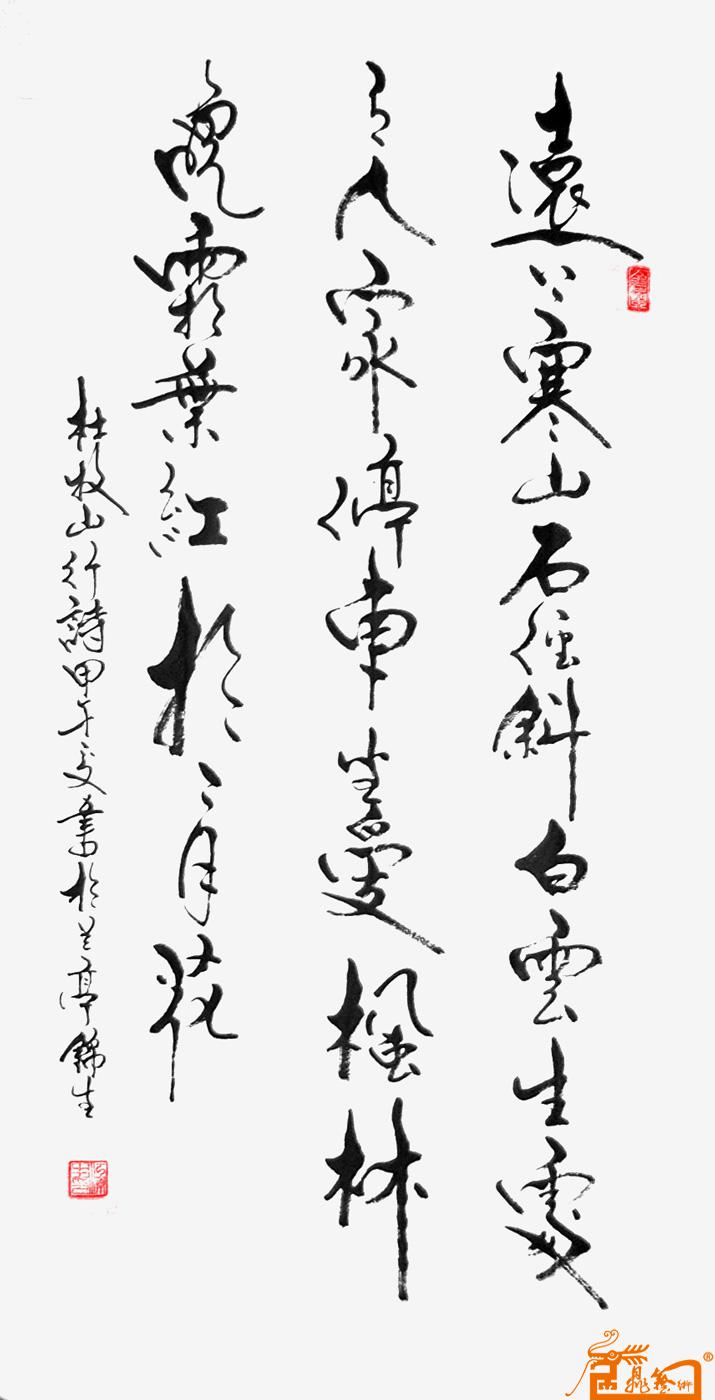 遠上寒山石徑斜白雲生處
有人家停車坐愛楓林
晚霜葉紅於二月花
杜牧山行詩甲午夏書於兰亭錦生